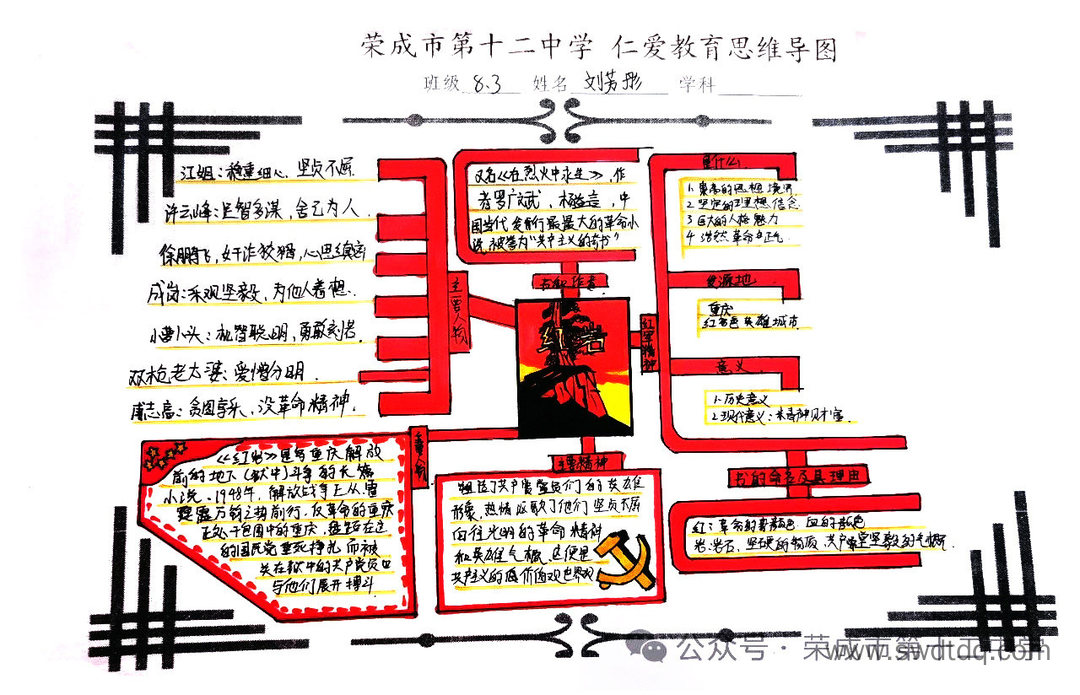 荣成市第十二中学 仁爱教育思维导图
班级 8.3 姓名 刘芳彤 学科
江姐：稳重细心、坚贞不屈
许云峰：足智多谋，舍己为人.
徐鹏飞，奸诈狡猾，心思缜密
成岗：乐观坚毅，为他人着想.
小萝卜头：机智聪明，勇敢
双枪老太婆：爱憎分明.
甫志高：贪图享乐、没革命精神.
主要人物
又名《在烈火中永生》，作
者罗广斌，杨益言，中
国当代发行最量大的革命小
说，被誉为“共产主义的奇书”
书名作者
红岩
红岩精神
是什么
1.崇高的思想境界
2.坚定的理想信念
3.巨大的人格魅力
4.浩然革命正气
发源地
重庆
红色英雄城市
意义
1.历史意义
2.现代意义：
书的命名及其理由
红：革命的颜色 血的颜色
岩：岩石，坚硬的物质，共产党坚毅的气概.
《红岩》是写重庆解放
前的地下(狱中)斗争的长篇
小说。1948年，解放战争上从雷
霆万钧之势前行，反革命的重庆
正处于包围中的重庆，
的国民党垂死挣扎 而被
关在狱中的共产党员也
与他们展开搏斗
主要精神
了共产党党员们的英雄
形象，热情讴歌了他们坚贞不屈
向往光明的革命精神
和英雄气概，这便是
共产主义的价值观世界观
公众号 · 荣成市第
www.swdtdq.com